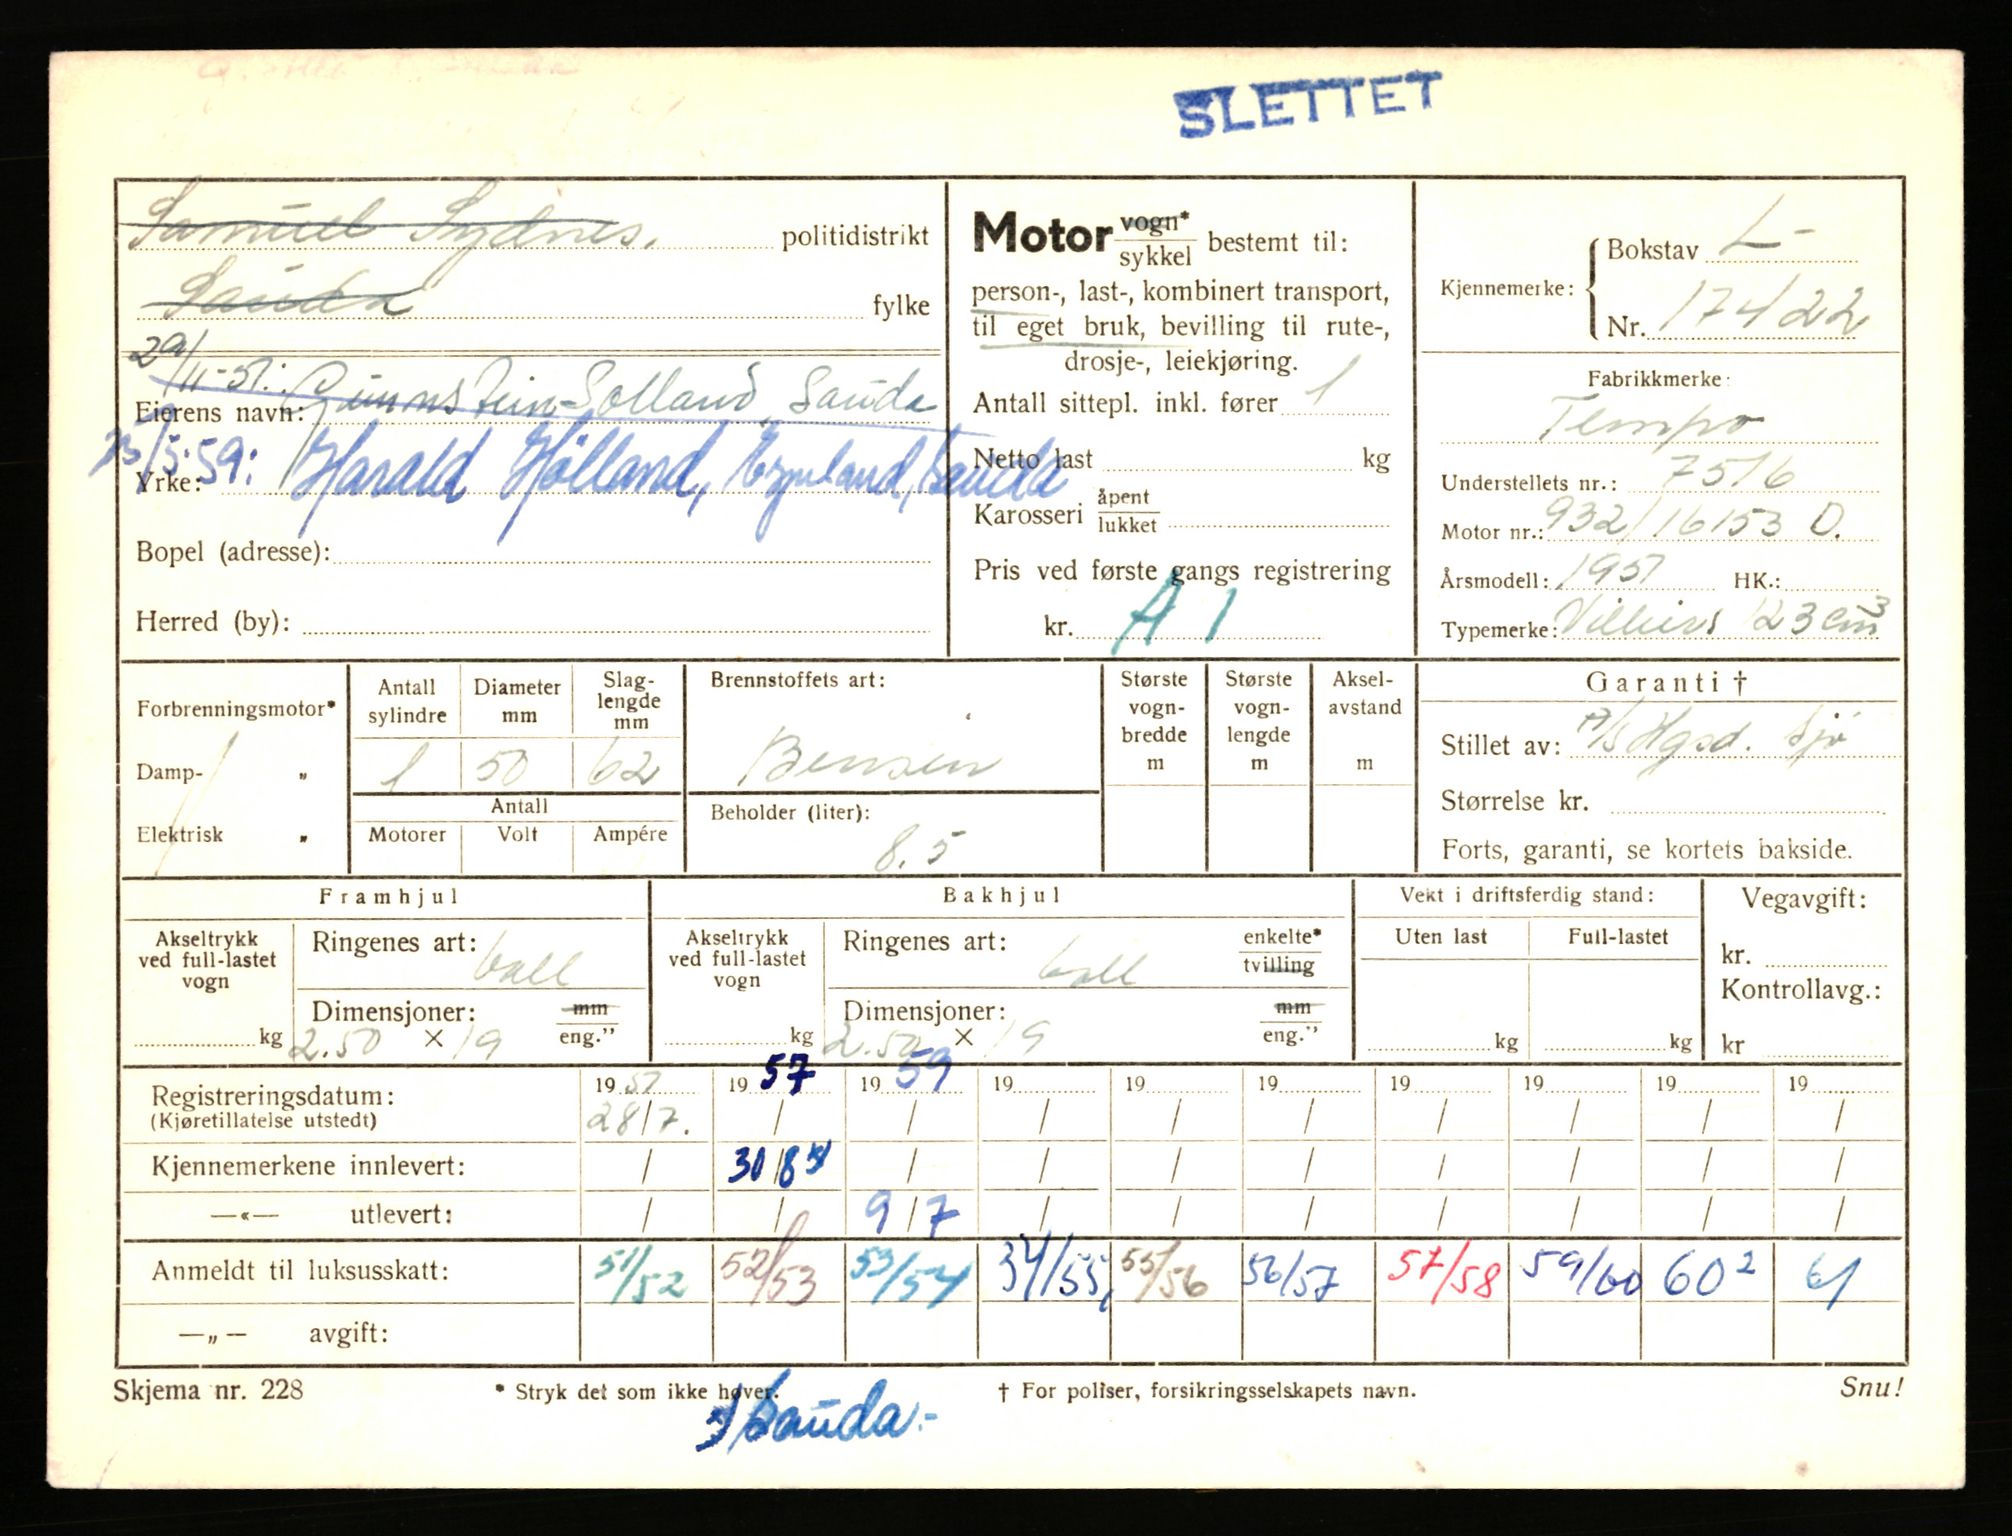 SLETTET
Samuel Sydnes. politidistrikt
Sauda fylke
29/11-51: Gunnstein Solland, Sauda
Eierens navn:
25/5.59: Harald Hølland, Sauda
Yrke:
Bopel (adresse):
Herred (by):
Motor vogn* / sykkel bestemt til:
person-, last-, kombinert transport,
til eget bruk, bevilling til rute-,
drosje-, leiekjøring.
Antall sittepl. inkl. fører 1
Netto last kg
Karosseri åpent / lukket
Pris ved første gangs registrering
kr. A 1
Kjennemerke: Bokstav L-
Nr. 17422
Fabrikkmerke:
Tempo
Understellets nr.: 7516
Motor nr.: 932/16153 D.
Årsmodell: 1951 HK.:
Typemerke: Villiers 123 cm3
Forbrenningsmotor*
Damp- „
Elektrisk „
Antall sylindre Diameter mm Slag-lengde mm
1 50 62
Antall
Motorer Volt Ampére
Brennstoffets art:
Bensin
Beholder (liter):
8.5
Største vogn-bredde m
Største vogn-lengde m
Aksel-avstand m
Garanti †
Stillet av: A/S Hgsd. Sjø
Størrelse kr.
Forts, garanti, se kortets bakside.
Framhjul
Akseltrykk ved full-lastet vogn
kg
Ringenes art: ball
Dimensjoner: mm / eng."
2.50 × 19
Bakhjul
Akseltrykk ved full-lastet vogn
kg
Ringenes art: ball enkelte* / tvilling
Dimensjoner: mm / eng."
2.50 × 19
Vekt i driftsferdig stand:
Uten last Full-lastet
kg kg
Vegavgift:
kr.
Kontrollavg.:
kr
Registreringsdatum: 1951 1957 1959 19 19 19 19 19 19 19
(Kjøretillatelse utstedt) 28/7. / / / / / / / / /
Kjennemerkene innlevert: / 30/8 / / / / / / / /
—«— utlevert: / / 9/7 / / / / / / /
Anmeldt til luksusskatt: 51/52 52/53 53/54 54/55, 55/56 56/57 57/58 59/60 60² 61
—„— avgift:
Skjema nr. 228 * Stryk det som ikke høver. † For poliser, forsikringsselskapets navn. Snu!
*) Sauda.-